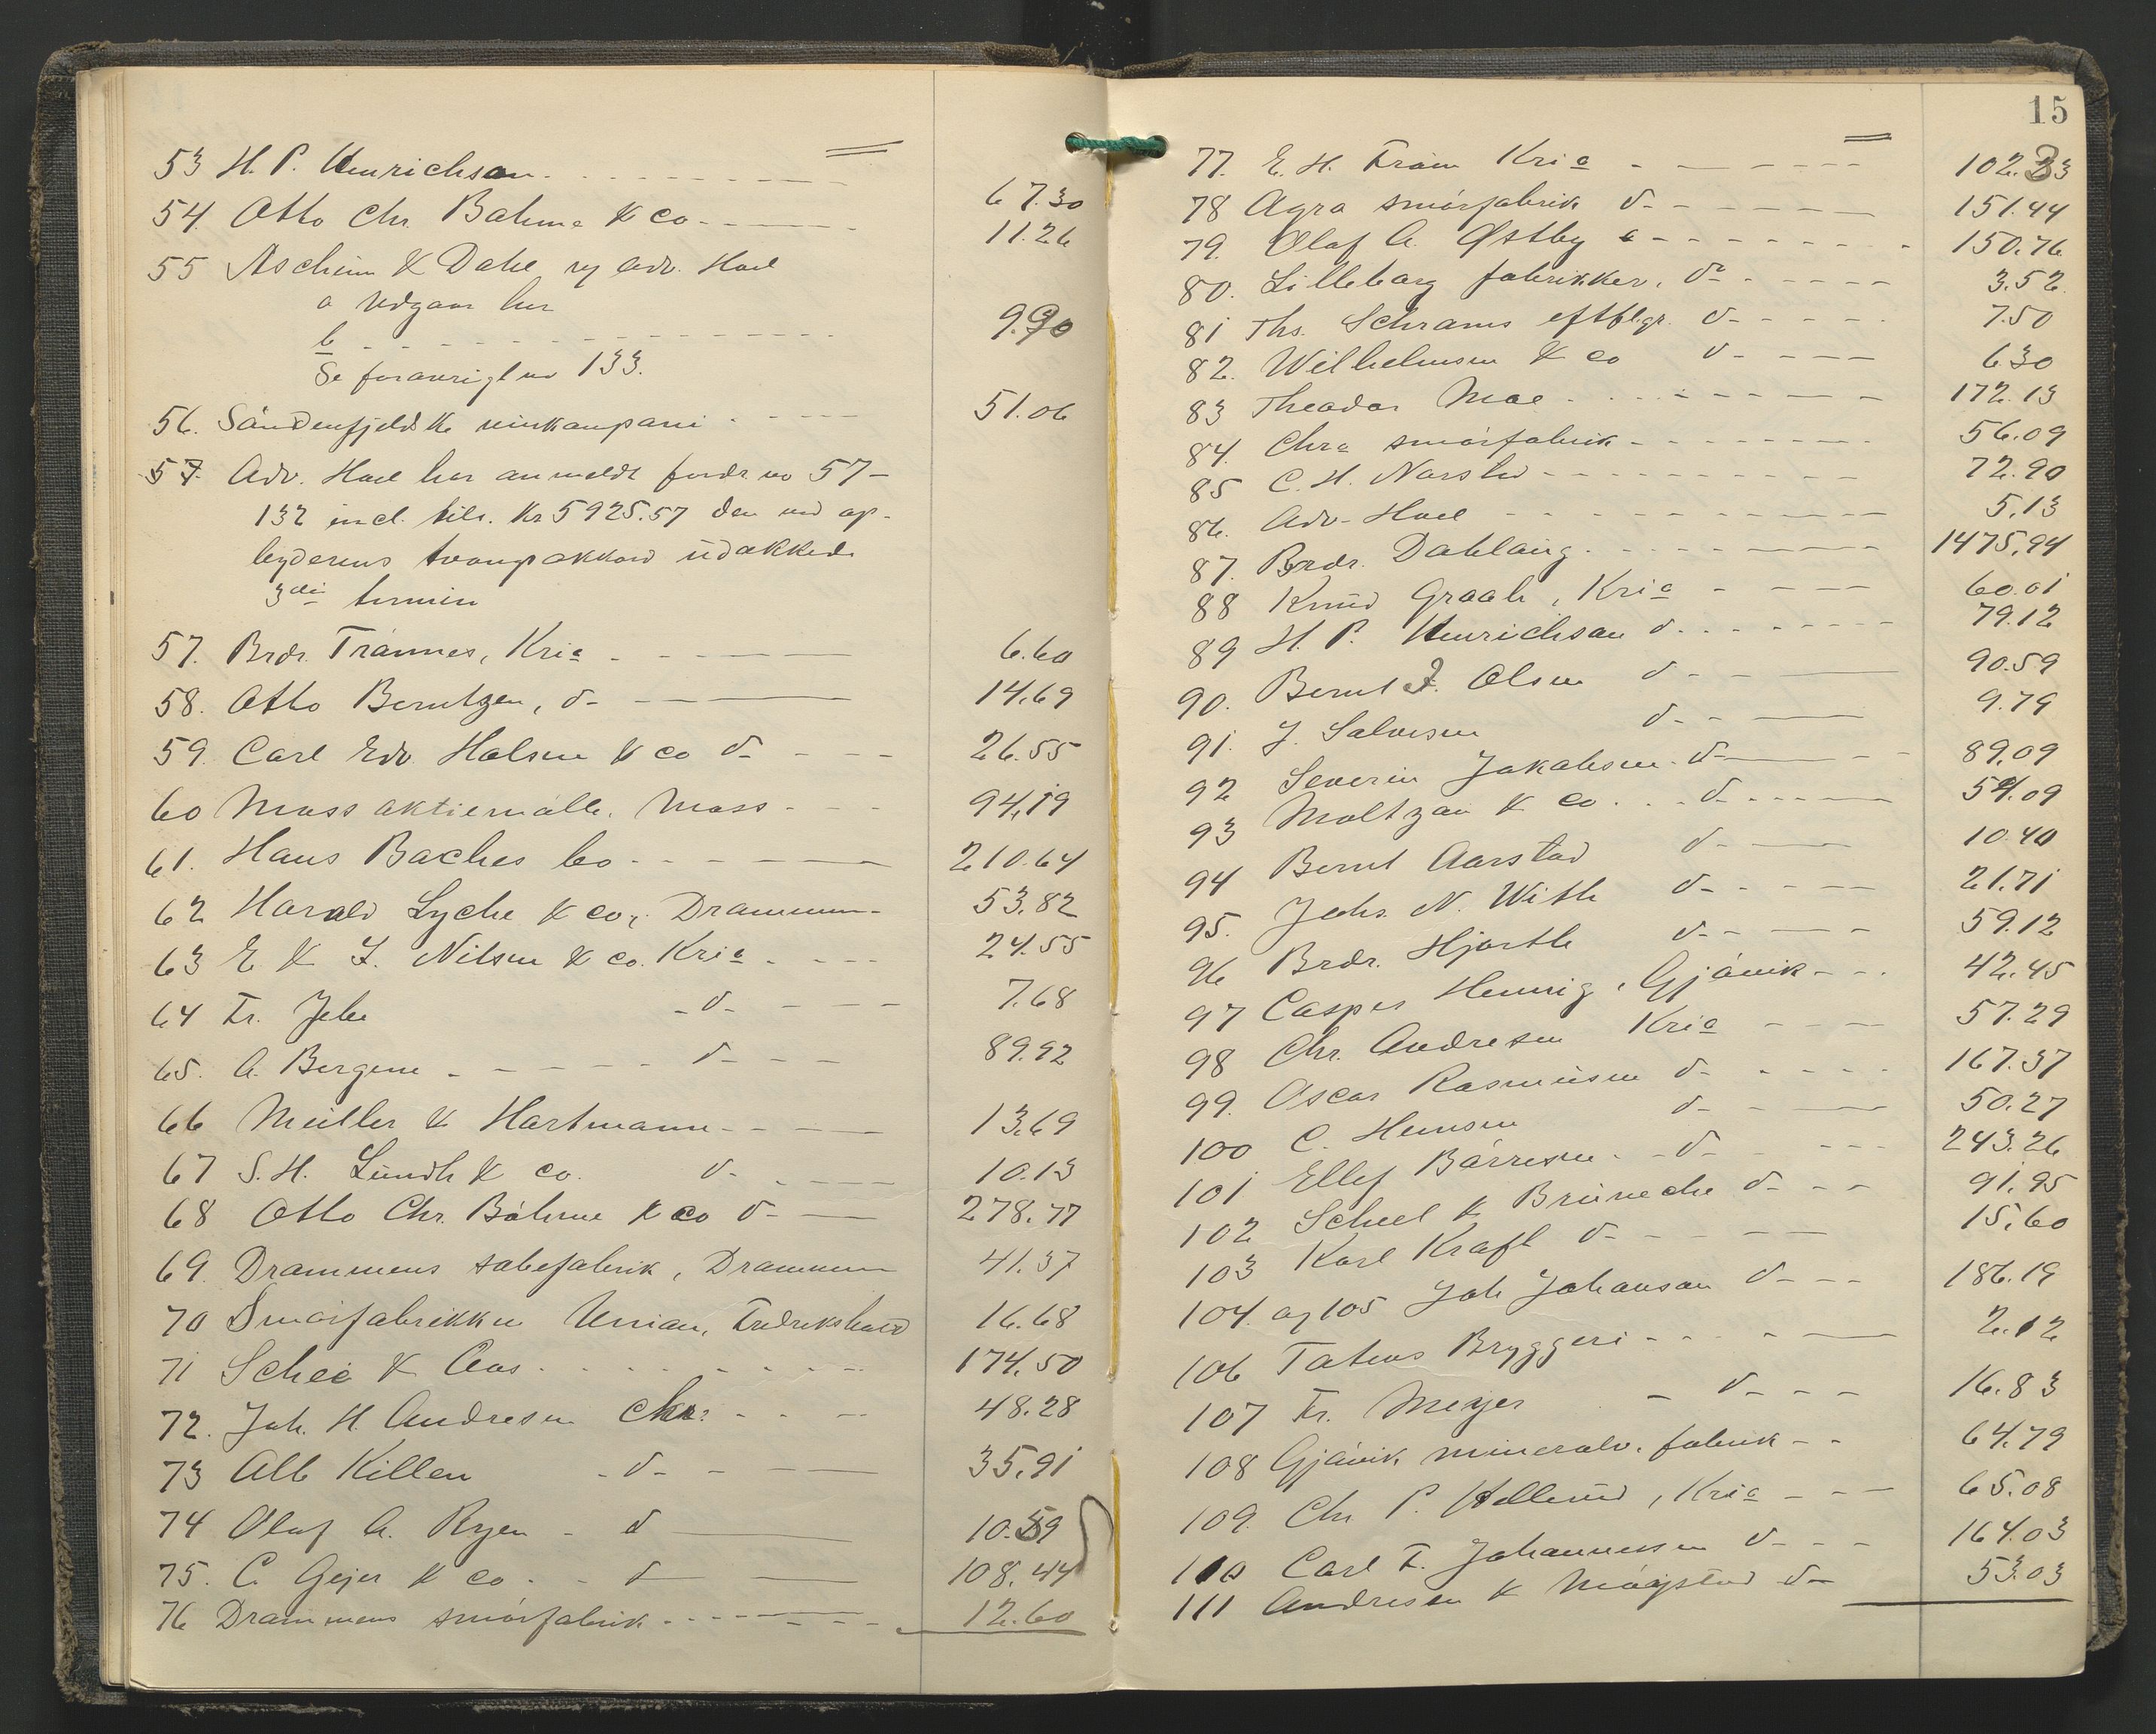 53 H. P. Henrichsen 67.30
54. Otto Chr. Bøhme & Co 11.26
55 Ascheim & Dahl v/ adv. Hoel
a udgaar her
b 9.90
Se forøvrigt no 133.
56. Søndenfjeldske vinkompani 51.06
57 Adv. Hoel har anmeldt fordr. no 57-
132 incl. tils. Kr 5925.57 den ved op-
byderens tvangsakkord udækkede
3die termin
57. Brdr. Trånnes, Kria 6.60
58. Otto Berntzen, d- 14.69
59. Carl Edv. Halsen & co d- 26.55
60 Moss aktiemølle, Moss 94.19
61. Hans Baches bo 210.64
62 Harald Lyche & co, Drammen 53.82
63 E & F. Nilsen & co. Kria 24.55
64 Fr. Jebe -d- 7.68
65. A. Bergene d- 89.92
66 Müller & Hartmann 13.69
67 S. H. Lundh & co. d- 10.13
68 Otto Chr. Bøhme & co d- 278.77
69. Drammens sæbefabrik, Drammen 41.37
70 Smørfabrikken Union, Fredrikshald 16.68
71 Schee & Aas 174.50
72. Joh. H. Andresen Chra 48.28
73 Alb Killen -d- 35.91
74 Olaf A. Ryen - d 10.59
75. C. Gejer & co - d 108.44
76 Drammens smørfabrik 12.60
15
77. E. H. Fram Kria 102.33
78 Agra smørfabrik d- 151.44
79. Olaf A. Østby 150.76
80. Lilleborg fabrikker, do 3.52
81 Ths. Schrams eftflgr. d- 7.50
82. Wilhelmsen & co d- 6.30
83 Theodor Moe 172.13
84. Chra smørfabrik 56.09
85 C. H. Norsted 72.90
86. Adv. Hoel 5.13
87. Brdr. Dahlaug 1475.94
88 Knud Graah, Kria 60.01
89 H. P. Henrichsen d 79.12
90. Bernt J. Olsen d- 90.59
91. J. Salvesen d- 9.79
92 Severin Jakobsen d- 89.09
93 Moltzau & Co d- 54.09
94 Bernt Aarstad d- 10.40
95. Johs. N. With d- 21.71
96 Brdr. Hjorth d- 59.12
97 Casper Hennig, Gjøvik 42.45
98 Chr. Andresen Kria 57.29
99. Oscar Rasmusen d- 167.37
100 C. Hennsen d- 50.27
101 Ellef Børresen d- 243.26
102 Scheel & Brüneche d- 91.95
103 Karl Kraft d- 15.60
104. og 105 Joh Johanson d- 186.19
106 Totens Bryggeri 2.12
107 Fr. Meyer - d- 16.83
108 Gjøvik mineralv. fabrik 64.79
109. Chr P. Hellerud, Kria 65.08
110 Carl F. Johannessen d- 164.03
111 Andresen & Møystad d- 53.03